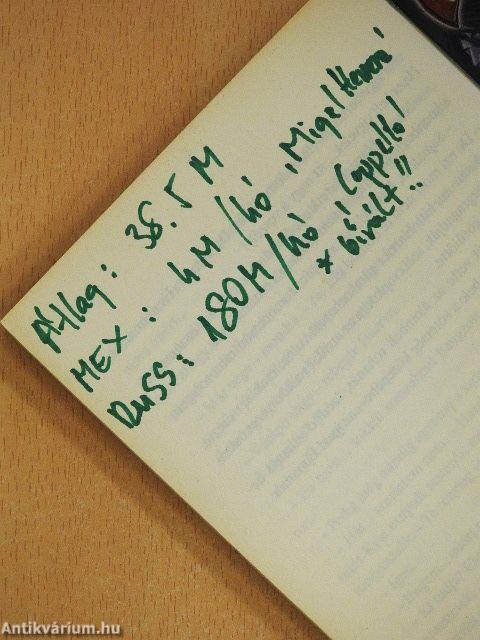 Átlag: 36.5 M
MEX: 4M/hó, Migel Herrera
RUSS: 180M/hó, Cappello!
* kivált!!
Antikvárium.hu